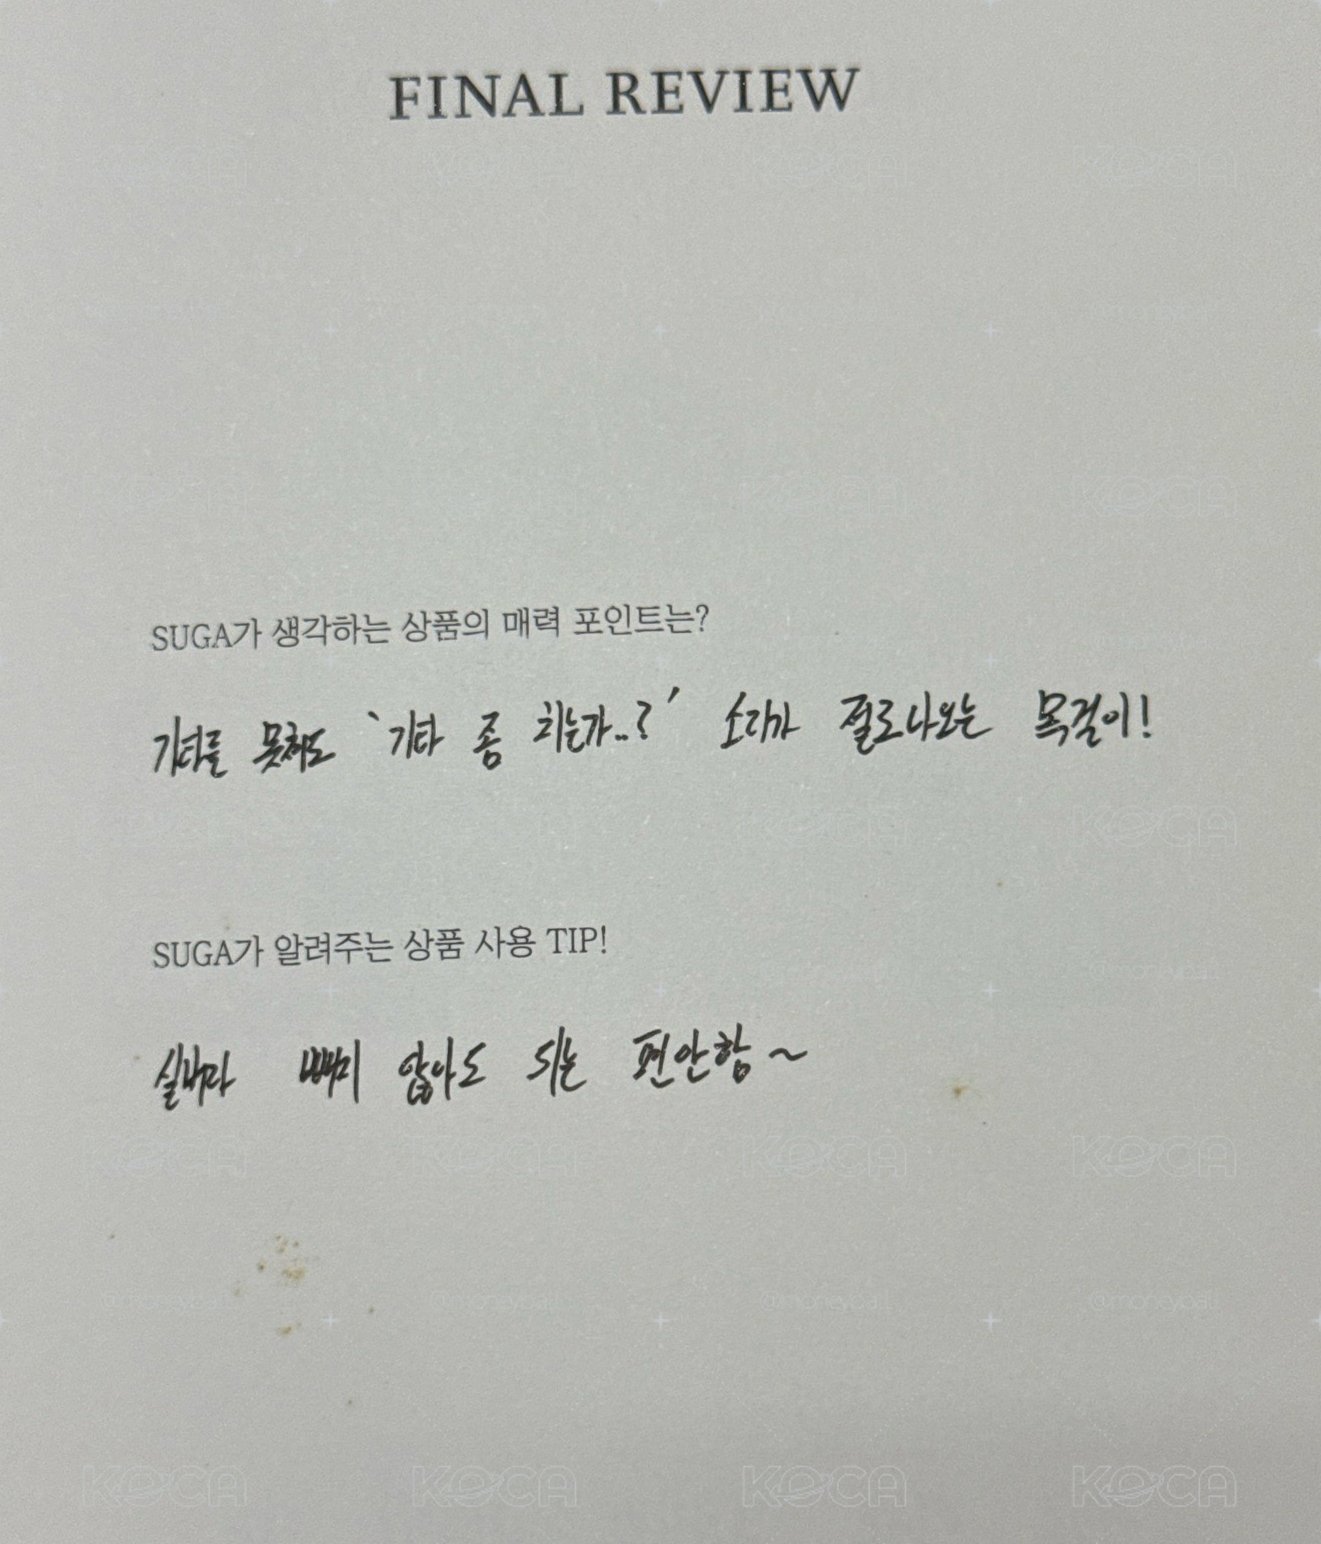 FINAL REVIEW
SUGA가 생각하는 상품의 매력 포인트는?
기타를 못쳐도 '기타 좀 치는가..?' 소리가 절로나오는 목걸이!
SUGA가 알려주는 상품 사용 TIP!
실버라 빼지 않아도 되는 편안함~
KOCA
@moneyball